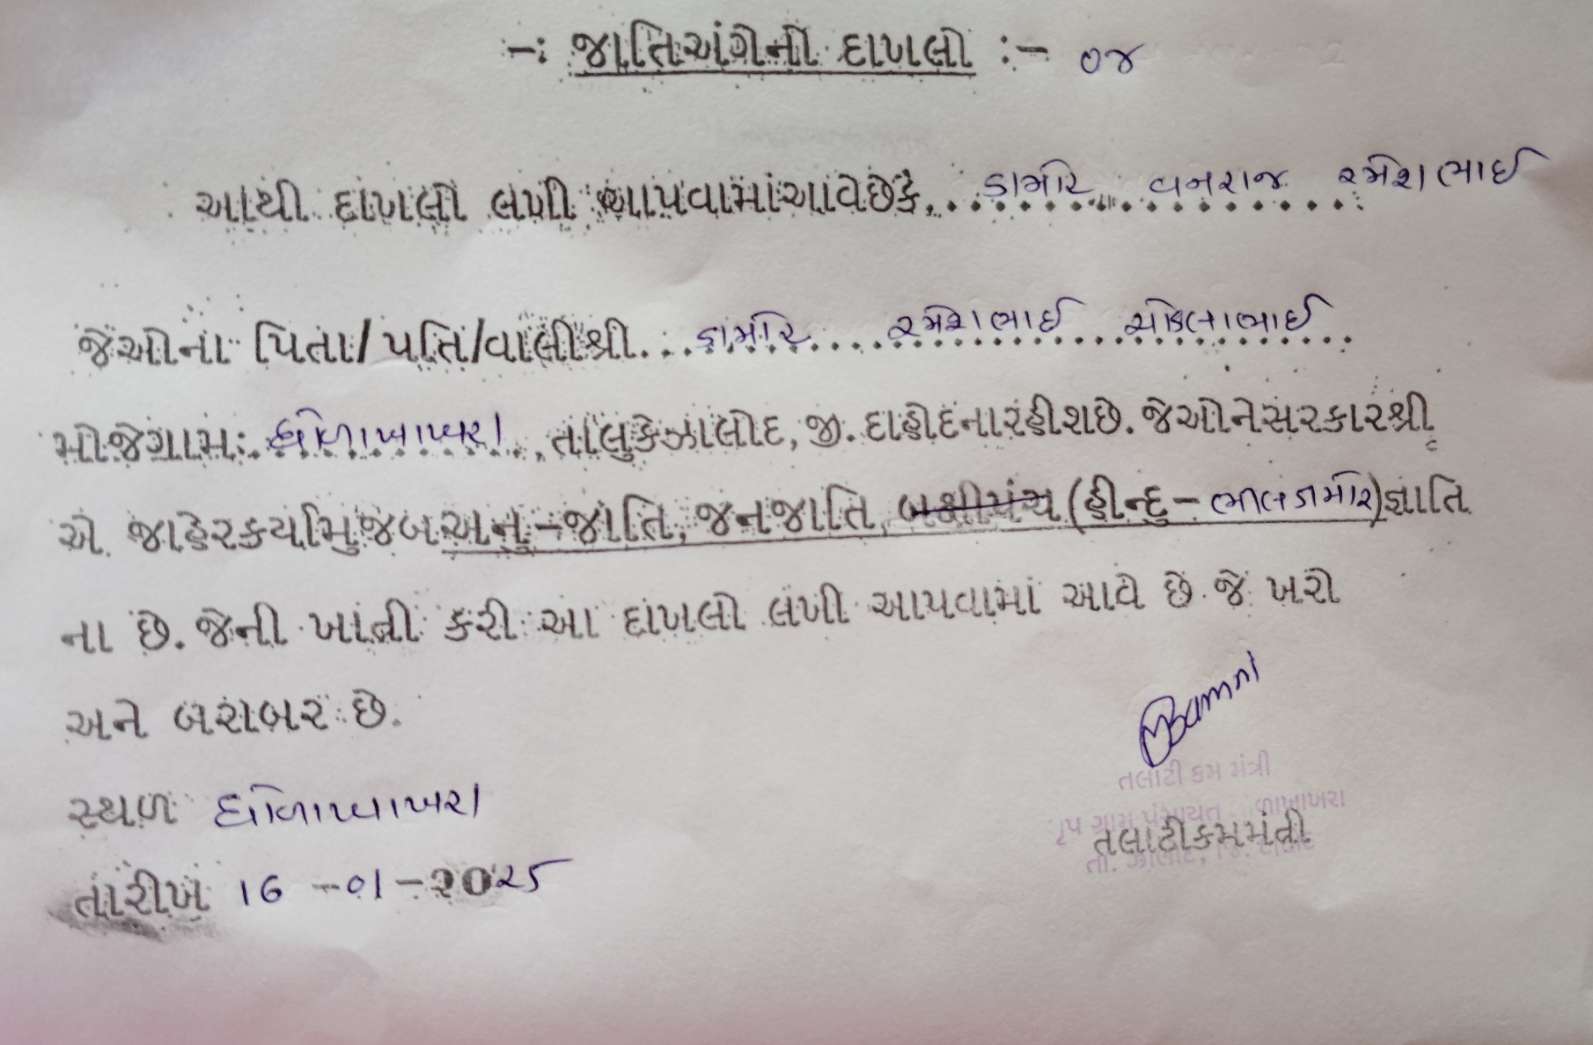 -: જાતિઅંગેનો દાખલો :- ૦૪
આથી દાખલો લખી આપવામાંઆવેછેકે, ડામોર વનરાજ રમેશભાઈ
જેઓના પિતા/પતિ/વાલીશ્રી... ડામોર રમેશભાઈ ચોકલાભાઈ
મોજેગામ:. ધોળાખાખરા, તાલુકેઝાલોદ, જી. દાહોદનારહીશછે. જેઓનેસરકારશ્રી
એ જાહેરકર્યામુજબઅનુ-જાતિ, જનજાતિ, બક્ષીપંચ (હીન્દુ-ભીલડામોર)જ્ઞાતિ
ના છે. જેની ખાત્રી કરી આ દાખલો લખી આપવામાં આવે છે જે ખરો
અને બરાબર છે.
સ્થળ ધોળાખાખરા
તારીખ 16 -01-૨૦૨૫
તલાટી કમ મંત્રી
ગ્રામ પંચાયત ળાખાખરા
તલાટીકમમંત્રી
તા. ઝાલોદ, જિ. દાહોદ